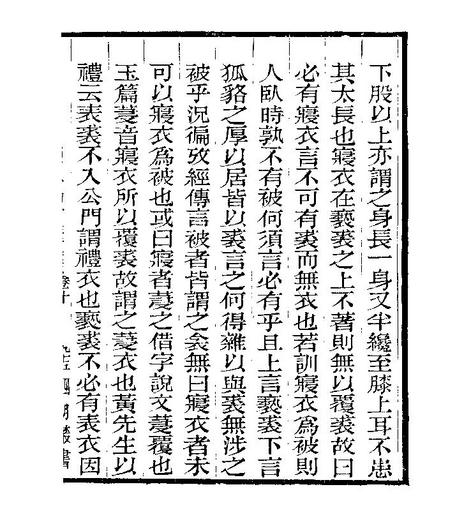 下股以上亦謂之身長一身又半纔至膝上耳不患
其太長也寢衣在褻裘之上不著則無以覆裘故曰
必有寢衣言不可有裘而無衣也若訓寢衣為被則
人臥時孰不有被何須言必有乎且上言褻裘下言
狐貉之厚以居皆以裘言之何得雜以與裘無涉之
被乎況徧攷經傳言被者皆謂之衾無曰寢衣者未
可以寢衣為被也或曰寢者蔓之借字說文蔓覆也
玉篇蔓音寢衣所以覆裘故謂之蔓衣也黃先生以
禮云表裘不入公門謂禮衣也褻裘不必有表衣因
卷十
九七五
四明叢書